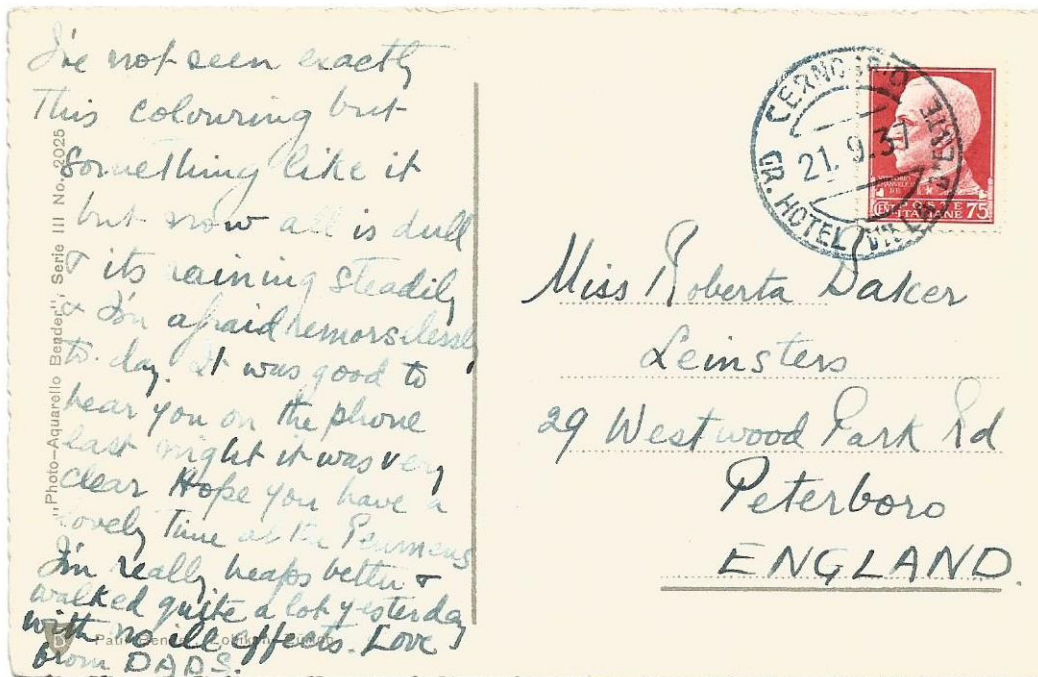 I've not seen exactly
This colouring but
Something like it
but now all is dull
& its raining steadily
& I'm afraid remorselessly
to day. It was good to
hear you on the phone
last night it was very
clear Hope you have a
lovely Time at the
I'm really heaps better &
walked quite a lot yesterday
with no ill effects. Love
from DADS.
"Photo-Aquarello Bender", Serie III No. 2025
Paul Bender, Zollikon-Zürich
CERNOBBIO
21. 9. 37
GR. HOTEL VILLA D'ESTE
POSTE ITALIANE
CENT 75
Miss Roberta Baker
Leinsters
29 Westwood Park Rd
Peterboro
ENGLAND.